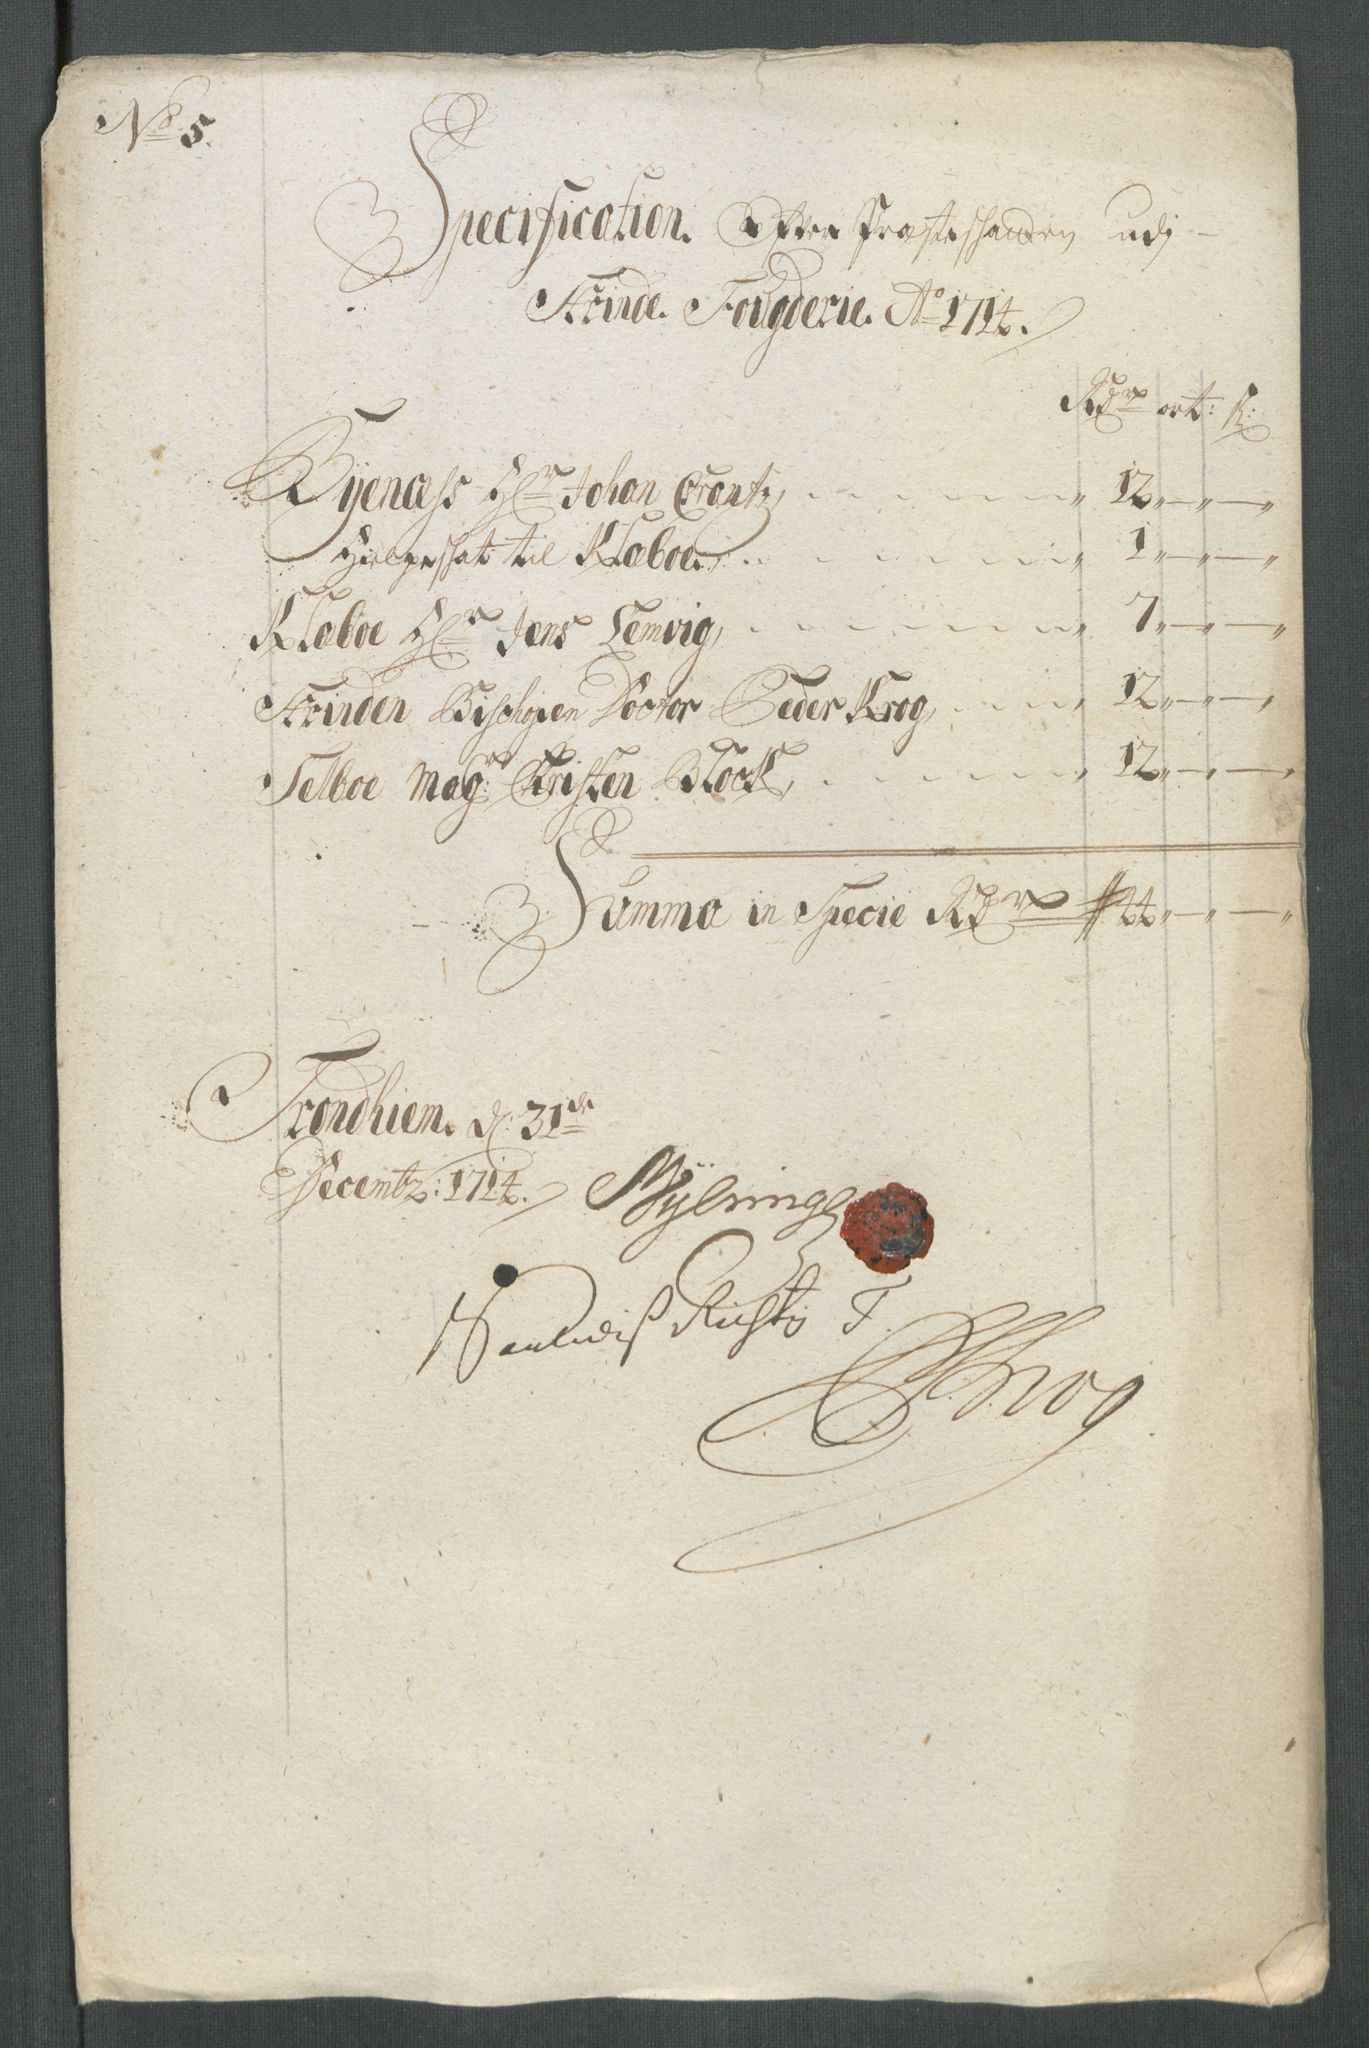 No 5.
Specification. Ofver Præsteskatten udj
Strinde. Fougderie. Ao 1714.
Rdr ort: s:
Byenæss Hr Johan Crantz, 12 " — " — "
Hielpeskat til Klæboe. 1 " — " — "
Klæboe Hr Jens Lemvig, 7 " — " — "
Strinden Bischopen Doctor Peder Krog, 12 " — " — "
Selboe Magr Christen Block, 12 " — " — "
Summa in Specie Rdr 44 " — " — "
Trondhiem. d: 31de
Decembr: 1714.
PKrog